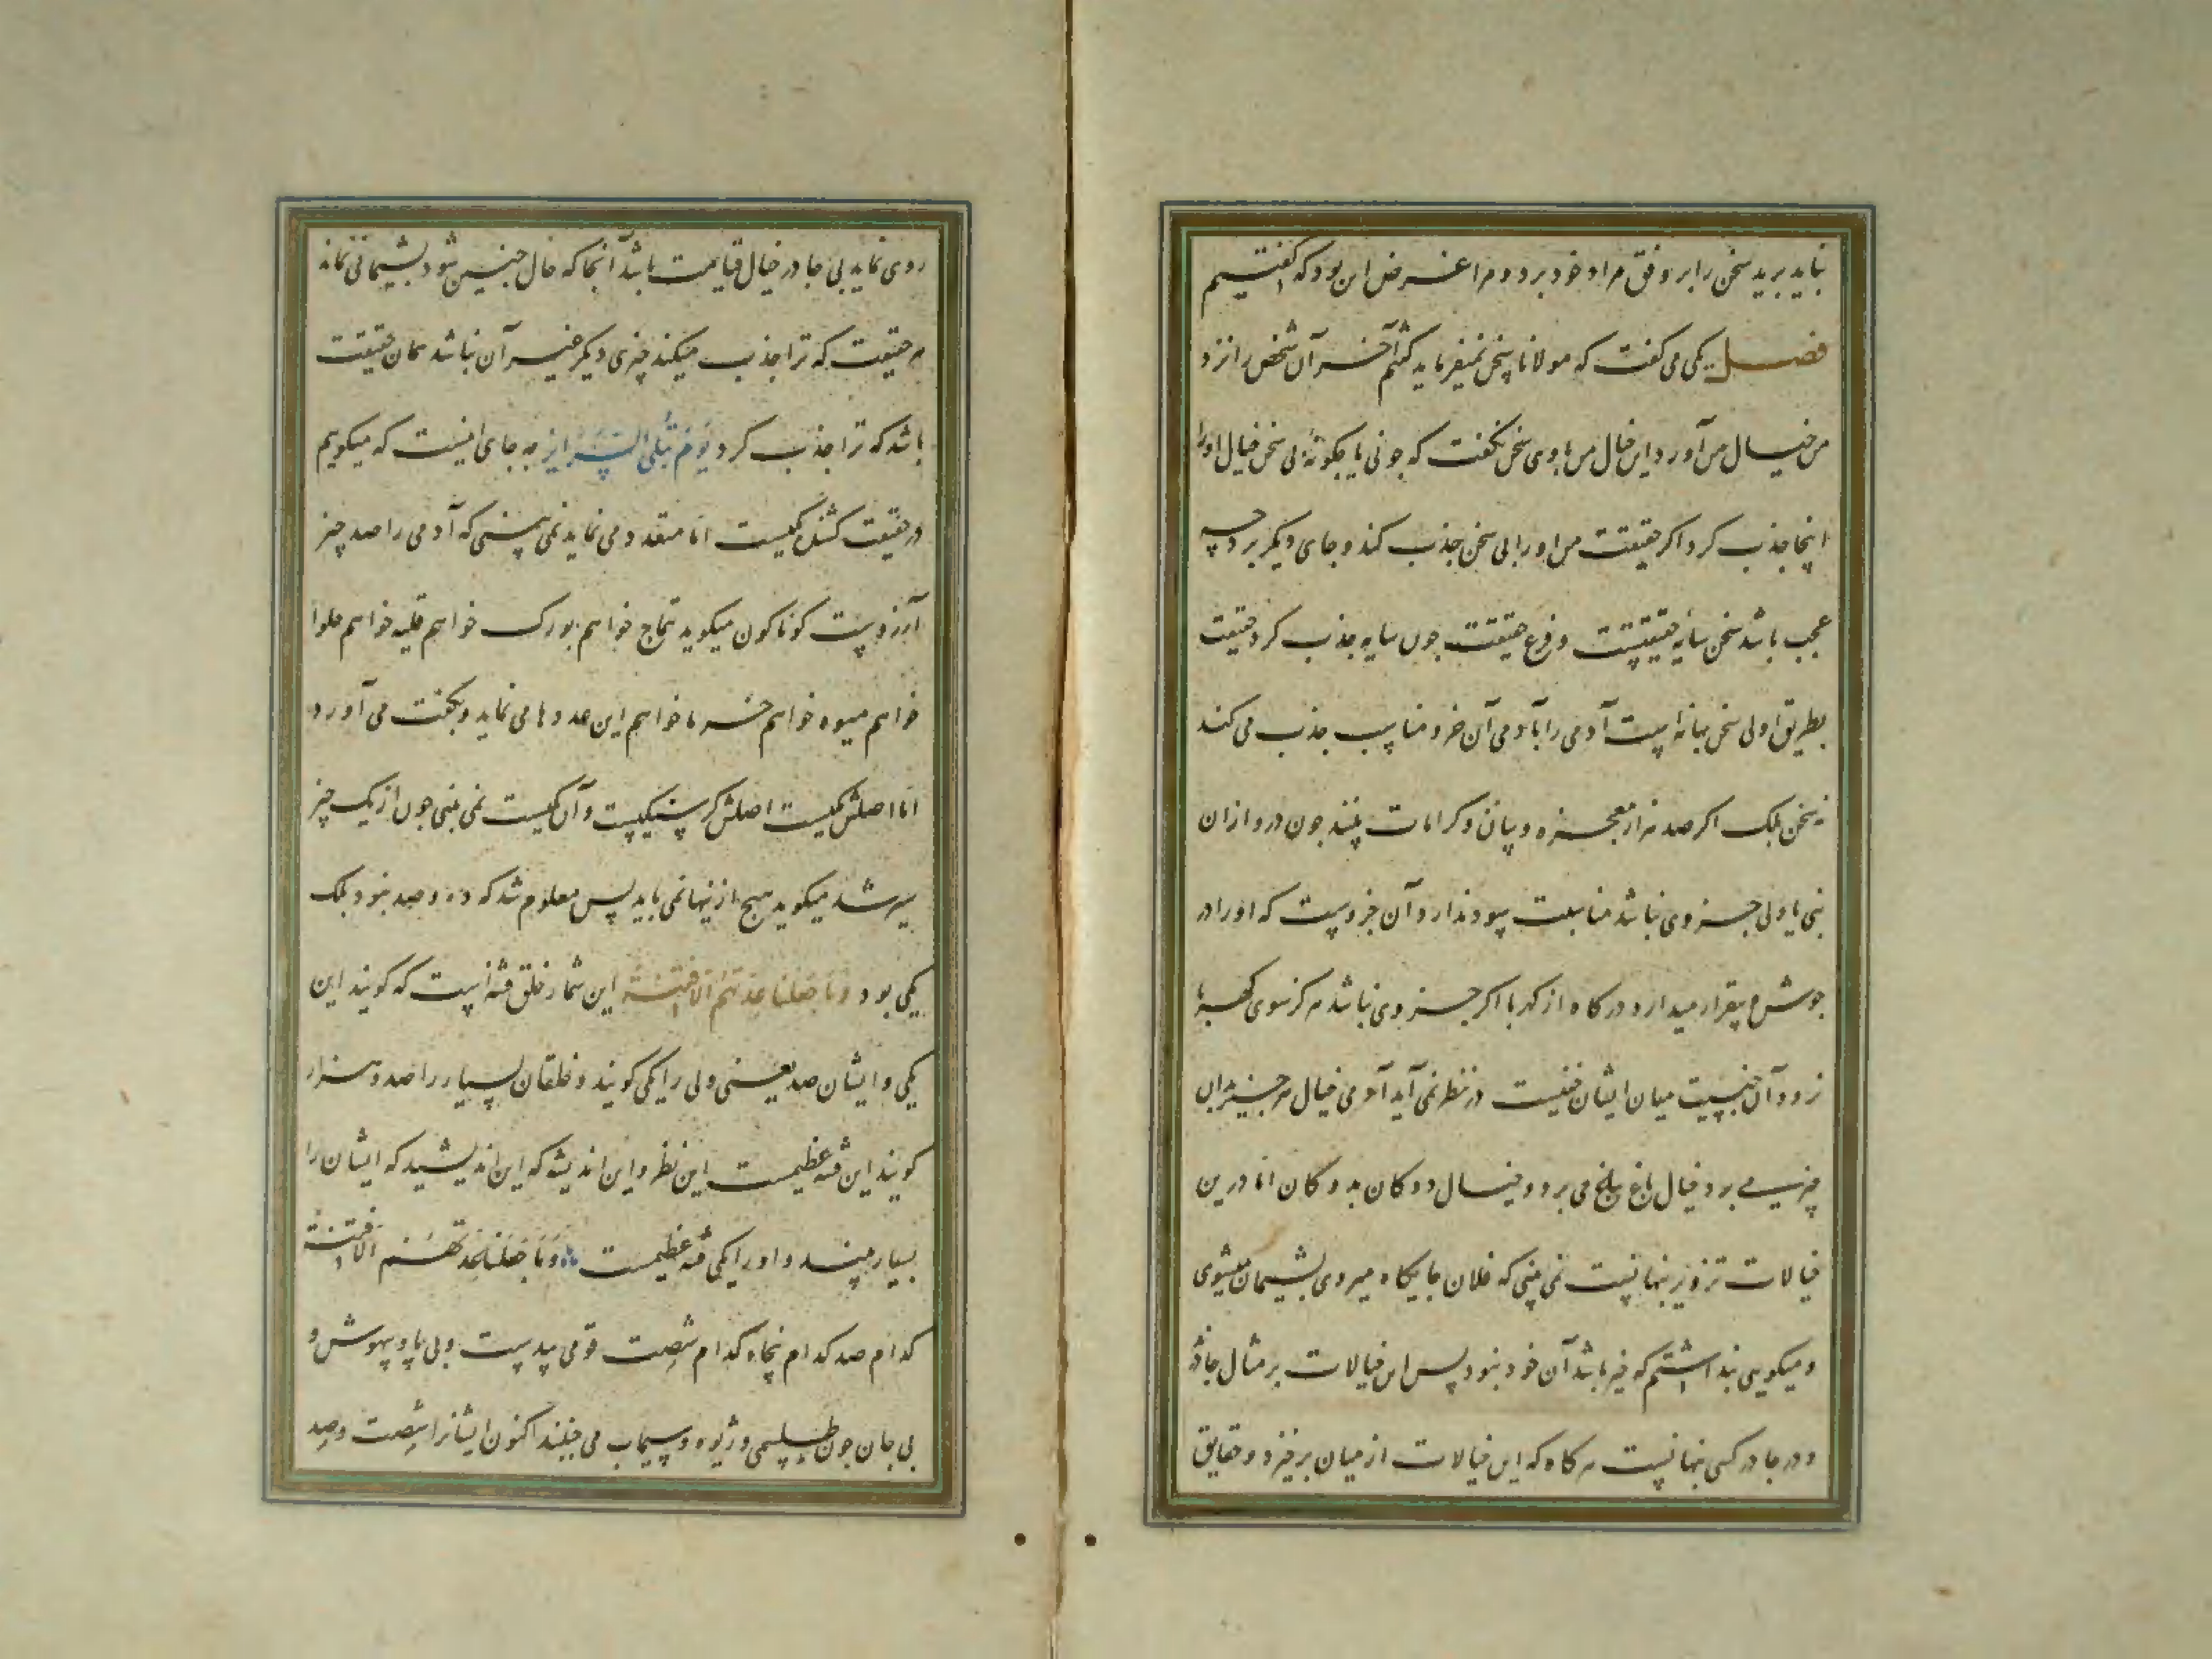 نباید برید سخن را بر وفق مراد خود برد و مرا غرض این بود که گفتیم
فصل یکی می گفت که مولانا سخن نمیفرماید گفتم آخر آن شخص را نزد
من خیال من آورد این خیال من با وی سخن نگفت که چونی یا چگونهٔ بی سخن خیال او را
اینجا جذب کرد اگر حقیقت من او را بی سخن جذب کند و جای دیگر برد چه
عجب باشد سخن سایهٔ حقیقتست و فرع حقیقت چون سایه جذب کرد حقیقت
بطریق اولی سخن بهانه است آدمی را با آدمی آن جزو مناسب جذب می کند
نه سخن بلک اگر صد هزار معجزه و بیان و کرامات بیند چون درو از ان
نبی یا ولی جزوی نباشد مناسبت سود ندارد آن جزوست که او را در
جوش و بیقرار میدارد در کاه از کهربا اگر جزوی نباشد هرگز سوی کهربا
نرود آن جنسیت میان ایشان خفیست در نظر نمی آید آدمی خیال هر چیز بدان
چیز می برد خیال باغ بباغ می برد و خیال دوکان بدوکان اما درین
خیالات تزویر پنهانست نمی بینی که فلان جایگاه میروی پشیمان میشوی
و میگویی پنداشتم که خیر باشد آن خود نبود پس این خیالات بر مثال چادرند
و در چادر کسی پنهانست هر گاه که این خیالات از میان برخیزد و حقایق
روی نماید بی چادر خیال قیامت باشد آنجا که حال چنین شود پشیمانی نماند
هر حقیقت که ترا جذب میکند چیزی دیگر غیر آن نباشد همان حقیقت
باشد که ترا جذب کرد یَوْمَ تُبْلَی السَّرَائِر چه جای اینست که میگویم
در حقیقت کشنده یکیست اما متعدد می نماید نمی بینی که آدمی را صد چیز
آرزوست گوناگون میگوید تتماج خواهم بورک خواهم قلیه خواهم حلوا
خواهم میوه خواهم خرما خواهم این عددها می نماید و بگفت می آورد
اما اصلش یکیست اصلش گرسنگیست و آن یکیست نمی بینی چون از یک چیز
سیر شد میگوید هیچ ازینها نمی باید پس معلوم شد که ده و صد نبود بلک
یکی بود وَمَا جَعَلْنَا عِدَّتَهُمْ اِلَّا فِتْنَةً این شمار خلق فتنه است که گویند این
یکی و ایشان صد یعنی ولی را یکی گویند و خلقان بسیار را صد و هزار
گویند این فتنهٔ عظیمست این نظر و این اندیشه که این اندیشید که ایشان را
بسیار بیند و او را یکی فتنهٔ عظیمست وَمَا جَعَلْنَا عِدَّتَهُمْ اِلَّا فِتْنَةً
کدام صد کدام پنجاه کدام شصت قومی بی دست و بی پا و بیهوش و
بی جان چون طلسمی و ژیوه و سیماب می جنبند اکنون ایشانرا شصت و صد